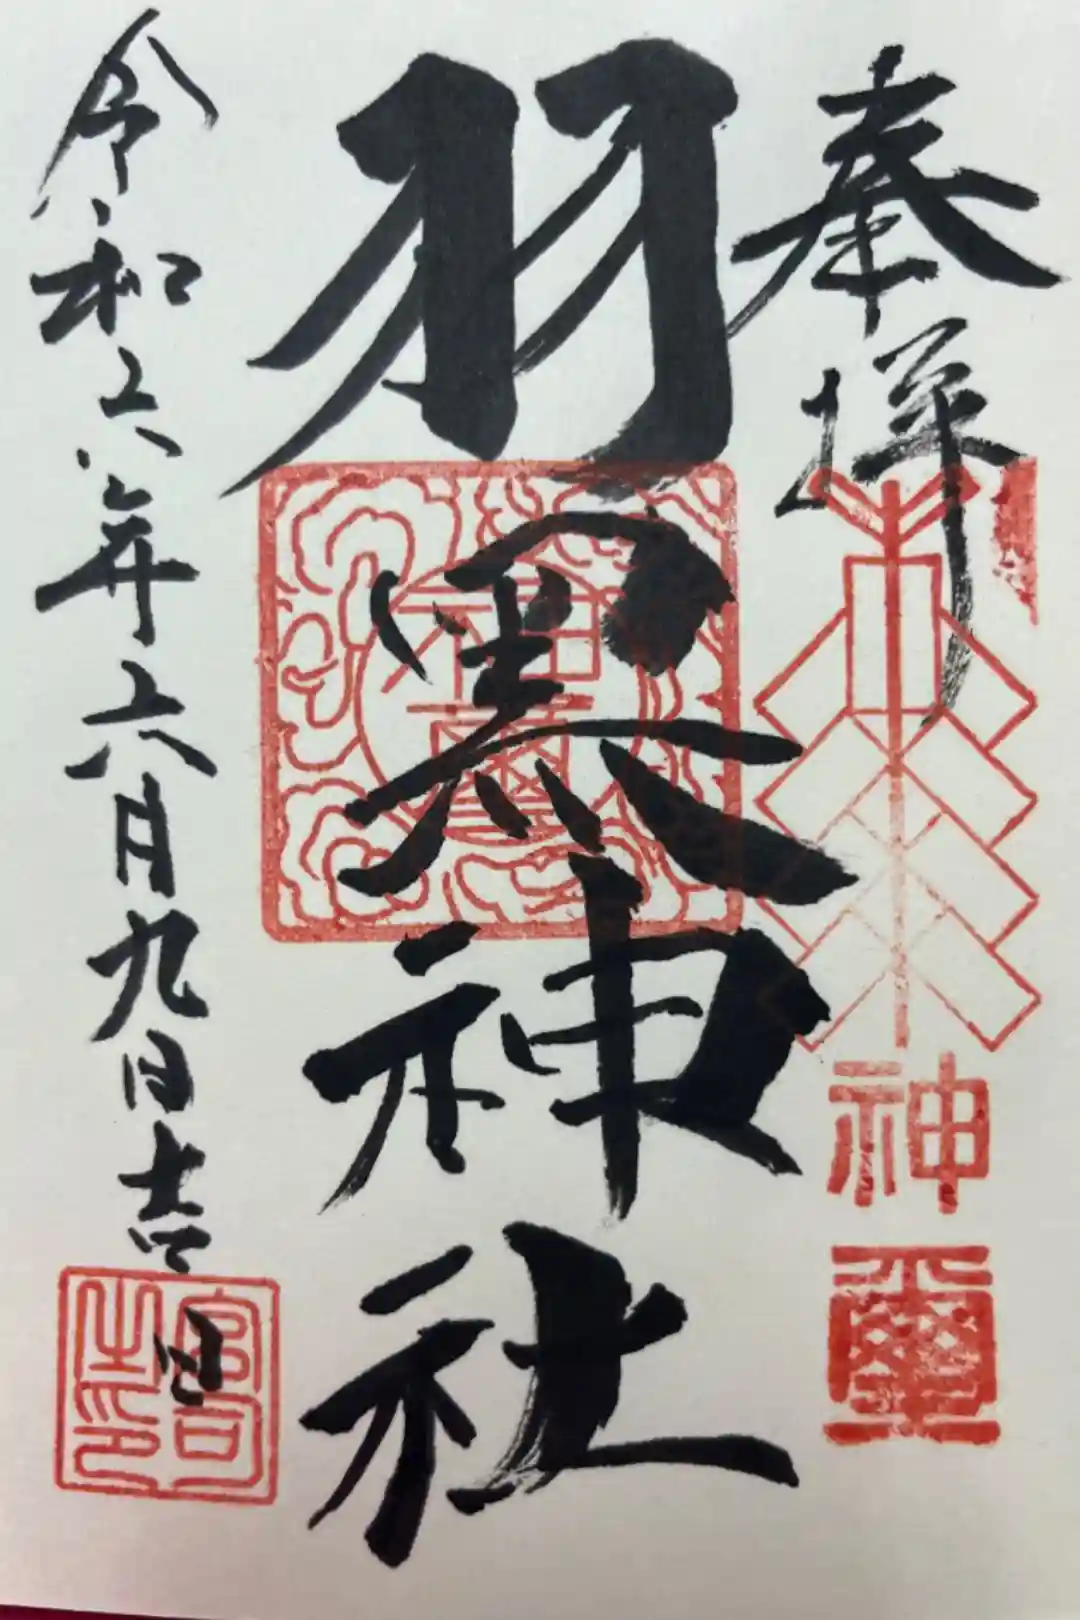 奉拝
神璽
羽黒神社
令和六年六月九日吉日
宮司之印